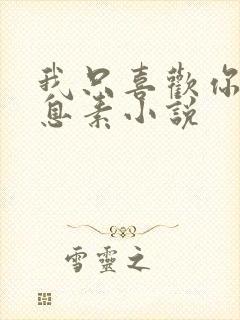 我只喜歡你
息素小說
雪靈之